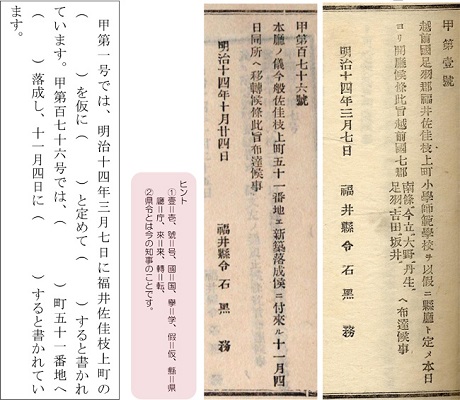 甲第壹號
越前國足羽郡福井佐佳枝上町小學師範學校ヲ以假ニ縣廳ト定メ本日
ヨリ開廳候條此旨越前國七郡 南條、今立、大野、丹生、足羽、吉田、坂井、 ヘ布達候事
明治十四年三月七日　福井縣令　石黑　務
甲第百七十六號
本廳ノ儀今般佐佳枝上町五十一番地ニ新築落成候ニ付來ル十一月四
日同所ヘ移轉候條此旨布達候事
明治十四年十月廿四日　福井縣令　石黑　務
ヒント
①壹=壱、號=号、國=国、學=学、假=仮、縣=県
廳=庁、來=来、轉=転、
②県令とは今の知事のことです。
甲第一号では、明治十四年三月七日に福井佐佳枝上町の
（　　　）を仮に（　　　）と定めて（　　　）すると書かれ
ています。甲第百七十六号では、（　　　）町五十一番地へ
（　　　）落成し、十一月四日に（　　　）すると書かれてい
ます。